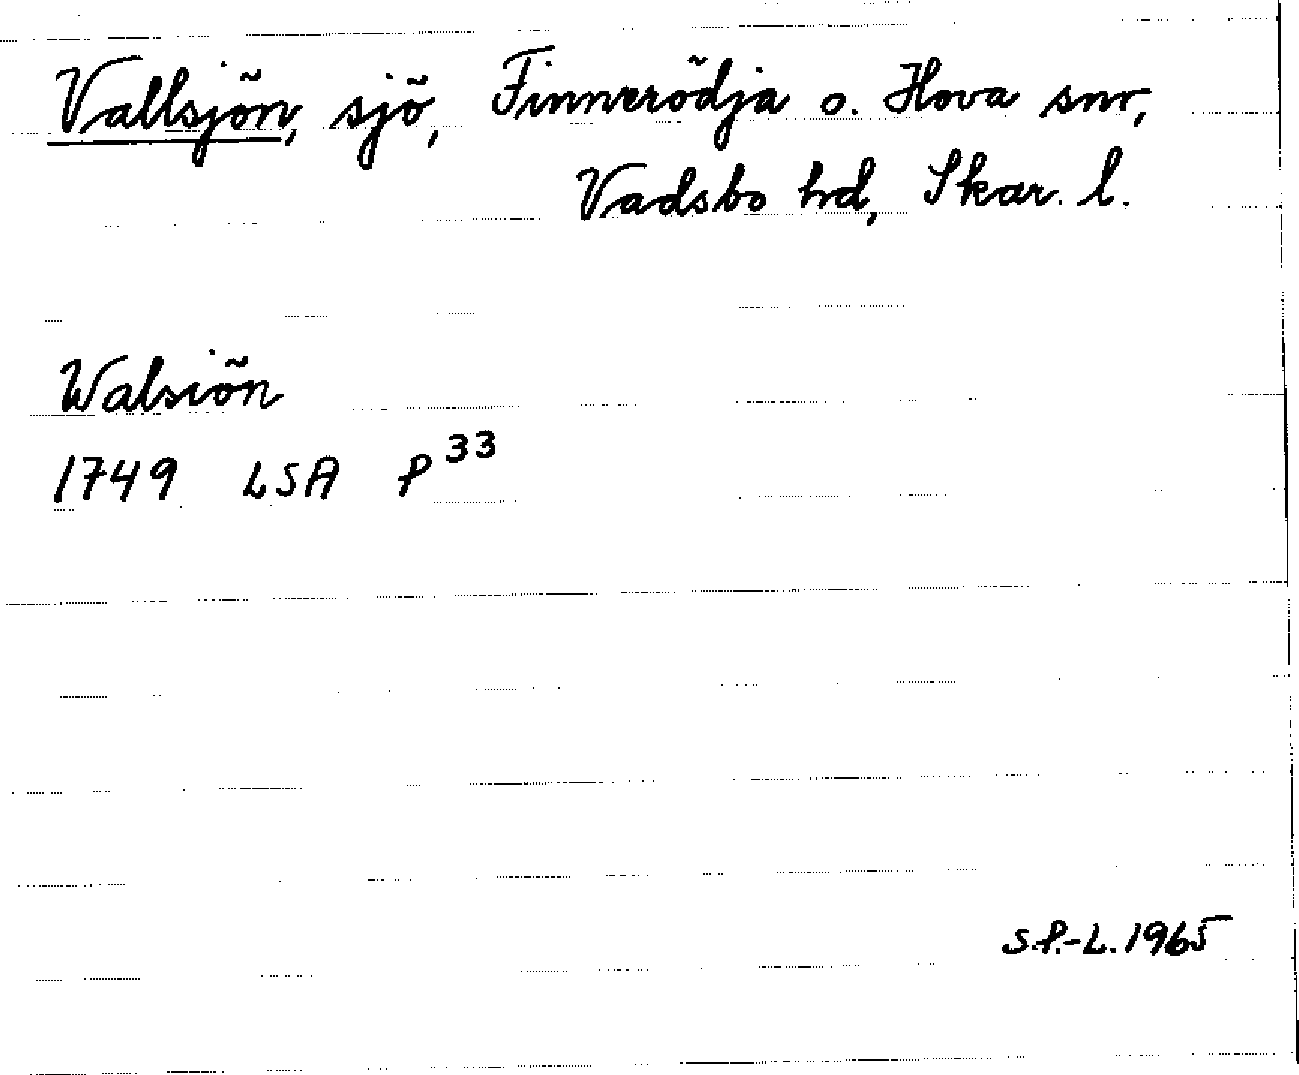 Vallsjön, sjö, Finnerödja o. Hova snr,
Vadsbo hd, Skar. l.
Walsiön
1749 LSA P 33
S.P.-L. 1965